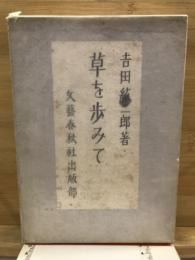 吉田 一郎著
草を歩みて
文藝春秋社出版部